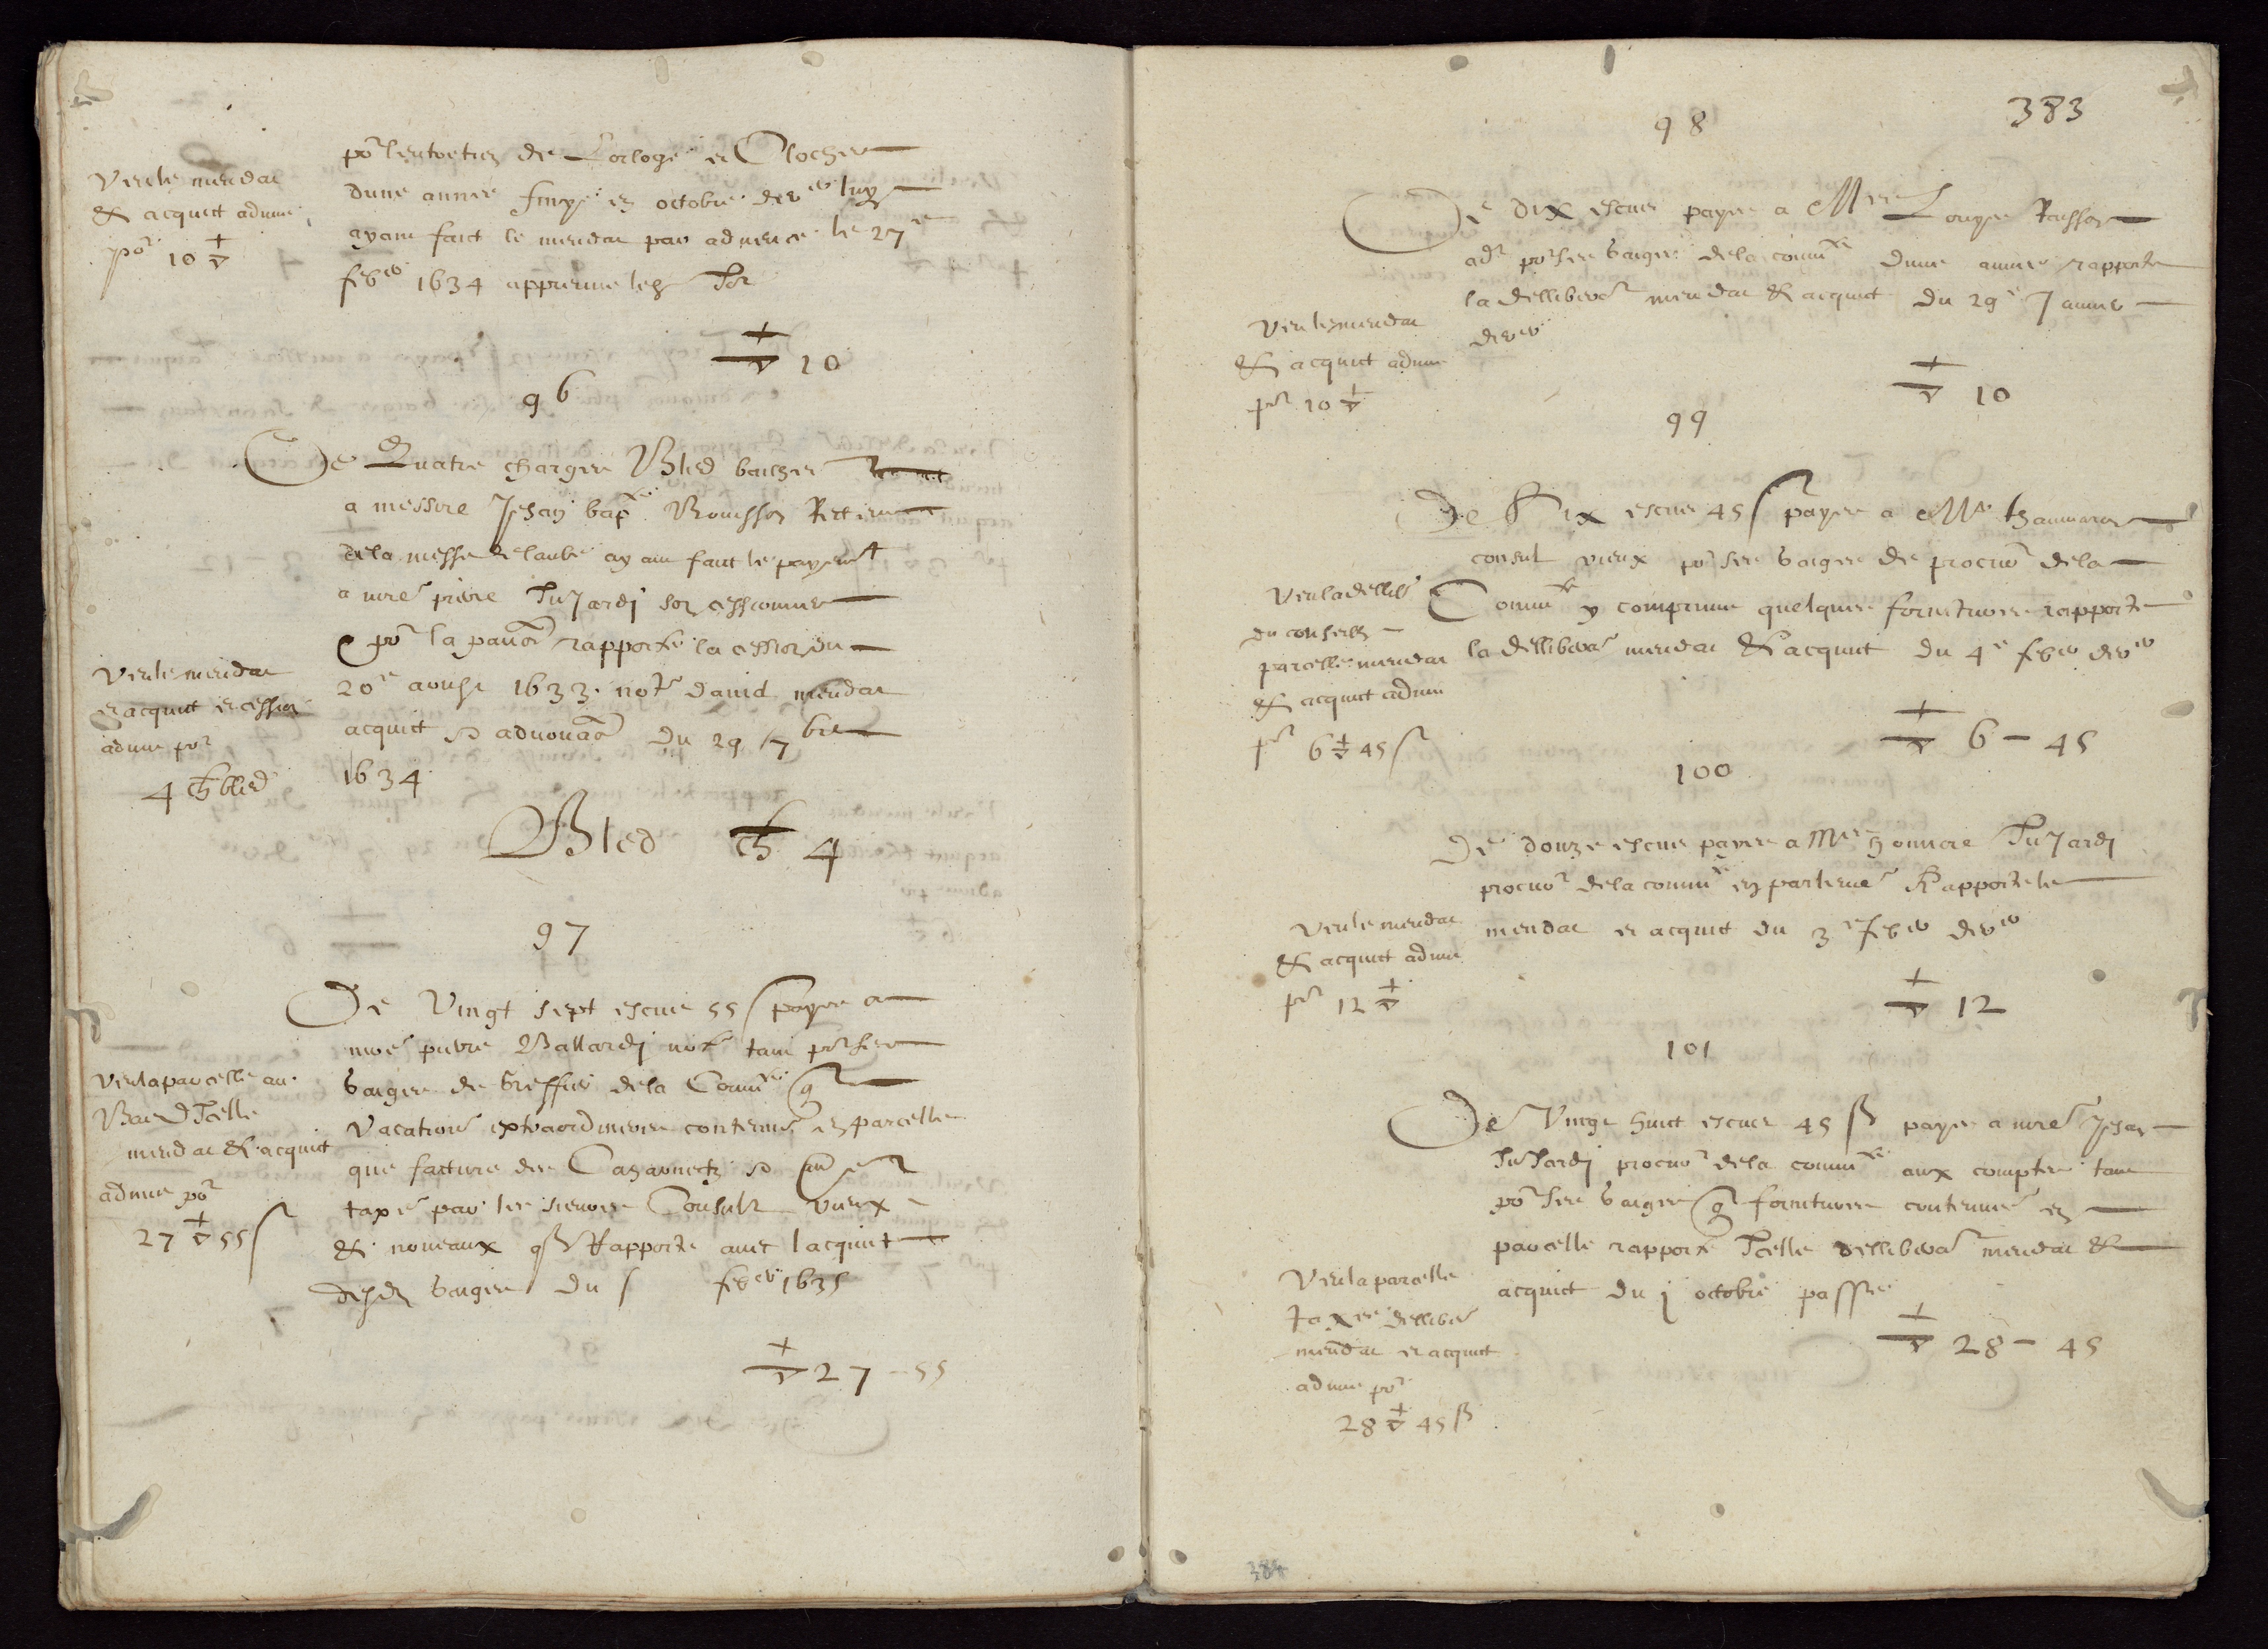 por lentretien de Lorloge et Clocher
dune annee finye en octobre der.er luy
ayant faict le mandat par advance le 27e
feb.er 1634 appreuve les
Veu le mandat
& acquict admis
por 10 ▽
▽ 10
96
De Quatre charges Bled baillees
a messire Jehan bap.te Recteur
de la messe de laube ayant faict le payemt
a mre pierre Jujardy son cessionnere
rapporte la cession du
20e aoust 1633. notre david mandat
acquict & du 29 7bre
1634
Veu le mandat
et acquict et cession
admis por
4 ch bled
Bled ch 4
97
De Vingt sept escus 55 s payes a
mre pierre Ballardy notre tant por ses
gaiges de greffier de la Commte q
vacations extraordineres contenues en parcelle
que facture des Cazaunetz &
taxe par les sieurs Consulz vieux
& nouveaux Rapporte avec lacquict
desdz gaiges du feb.er 1635
Veu la parcelle au
Bas dIcelle
mandat & acquict
admis por
27 ▽ 55 s
▽ 27 - 55
383
98
De dix escus payes a Mre Louys
adt por ses gaiges de la commte dune annee rapporte
la delliberaon mandat & acquict du 29e Janvier
der.er
Veu les mandat
& acquict admis
por 10 ▽
▽ 10
99
De Six escus 45 s payes a Mre
consul vieux por ses gaiges de procur de la
Commte y comprins quelques fornitures rapporte
la delliberaon mandat & acquict du 4e feb.er der.er
Veu la dellibe
du conseilh
parcelle mandat
& acquict admis
por 6 ▽ 45 s
▽ 6 - 45
100
De douze escus payes a Mre honnore Jujardy
procur de la commte en parlement Rapporte le
mandat et acquict du 3e feb.er der.er
Veu le mandat
& acquict admis
por 12 ▽
▽ 12
101
De Vingt huict escus 45 s payes a mre Jehan
Jujardy procur de la commte aux comptes tant
por ses gaiges q fornitures contenues en
parcelle rapporte Icelle delliberaon mandat &
acquict du j octobre passe
Veu la parcelle
taxee dellibe
mandat et acquict
admis por
28 ▽ 45 s
▽ 28 - 45
384